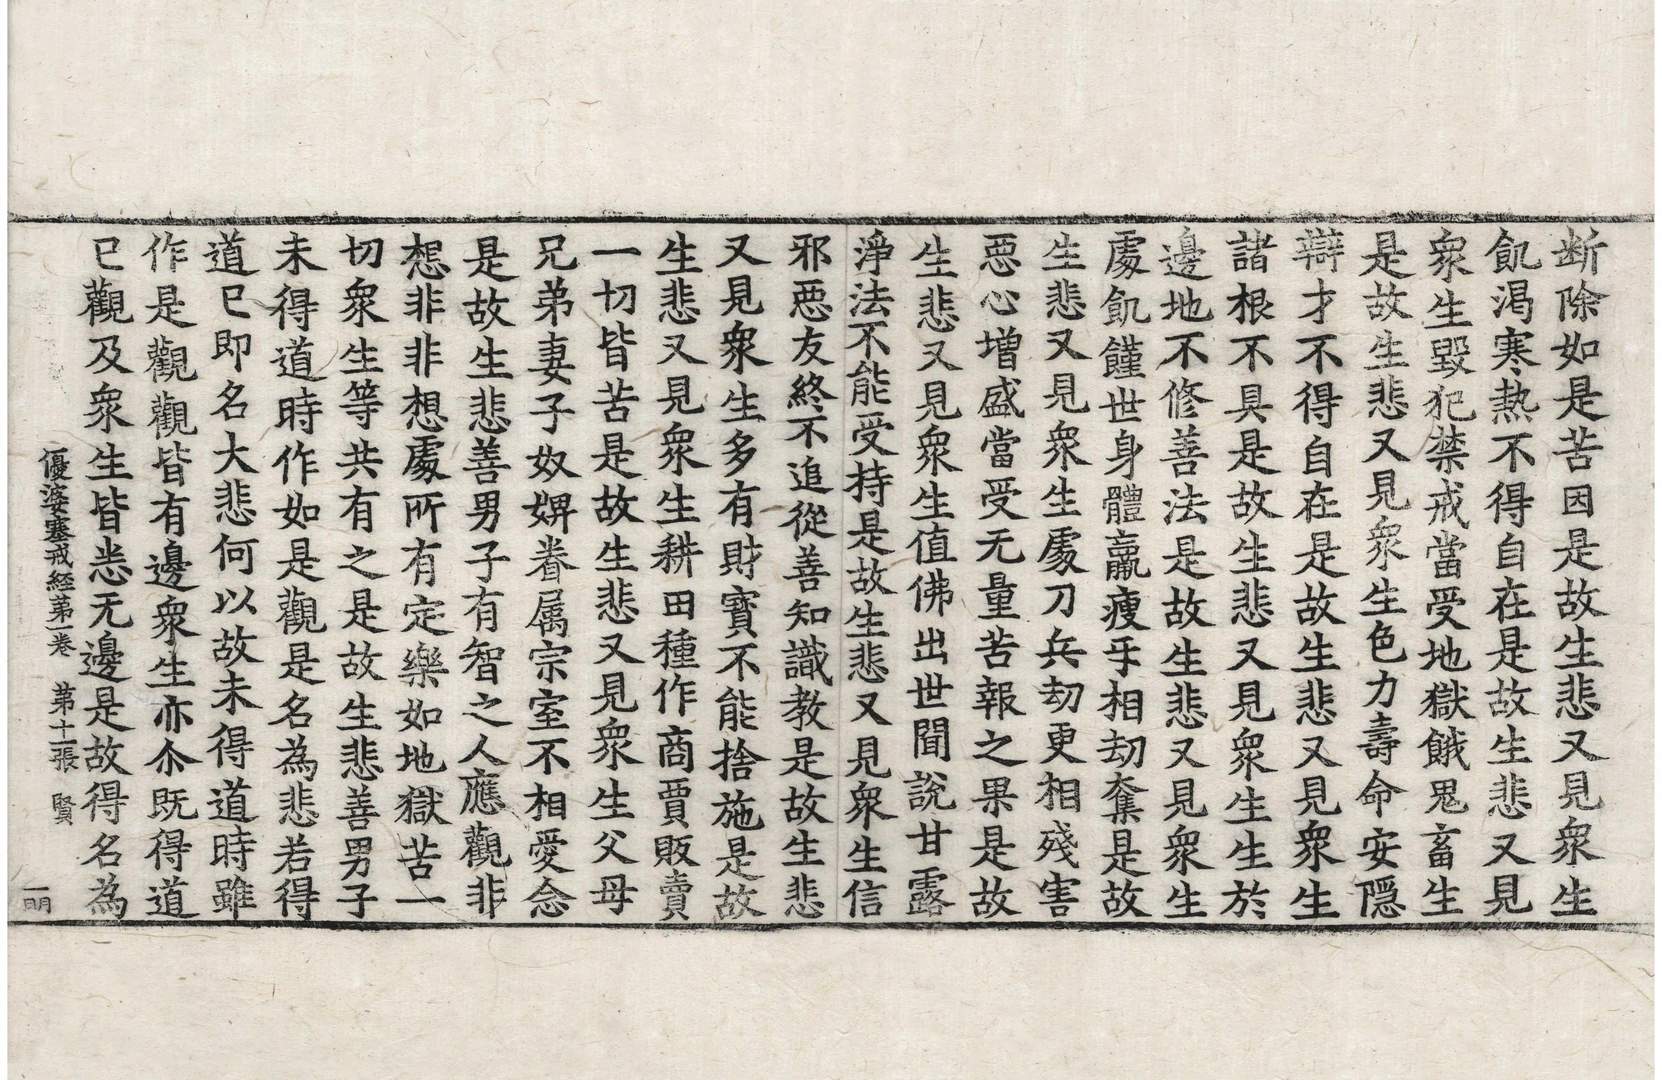 断除如是苦因是故生悲又見衆生
飢渴寒熱不得自在是故生悲又見
衆生毀犯禁戒當受地獄餓鬼畜生
是故生悲又見衆生色力壽命安隱
辯才不得自在是故生悲又見衆生
諸根不具是故生悲又見衆生生於
邊地不修善法是故生悲又見衆生
處飢饉世身體羸瘦𤓰相劫奪是故
生悲又見衆生處刀兵劫更相殘害
惡心增盛當受无量苦報之果是故
生悲又見衆生值佛出世聞說甘露
淨法不能受持是故生悲又見衆生信
邪惡友終不追從善知識教是故生悲
又見衆生多有財寶不能捨施是故
生悲又見衆生耕田種作商賈販賣
一切皆苦是故生悲又見衆生父母
兄弟妻子奴婢眷属宗室不相愛念
是故生悲善男子有智之人應觀非
想非非想處所有定樂如地獄苦一
切衆生等共有之是故生悲善男子
未得道時作如是觀是名為悲若得
道已即名大悲何以故未得道時雖
作是觀觀皆有邊衆生亦尒既得道
已觀及衆生皆悉无邊是故得名為
優婆塞戒経第一卷 第十一張 賢
一明